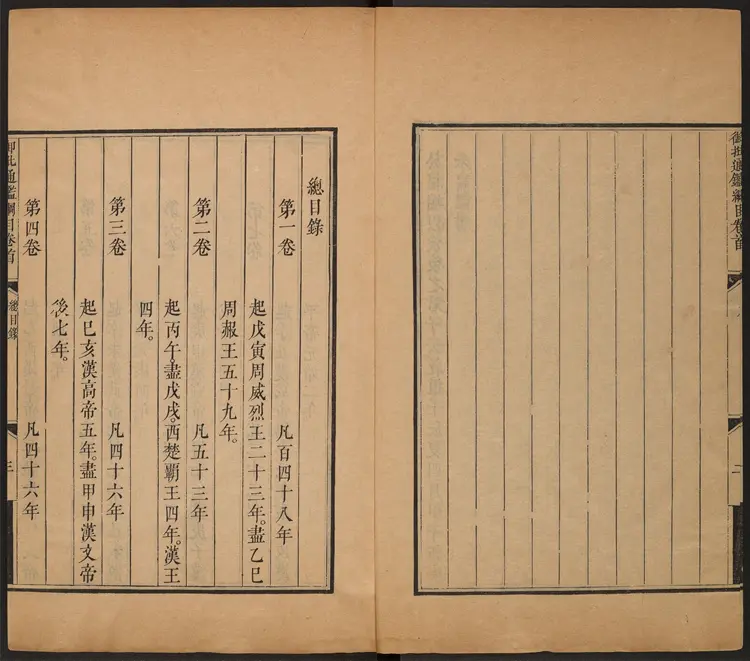 御批通鑑綱目卷首
二
總目錄
第一卷 凡百四十八年
起戊寅周威烈王二十三年。盡乙巳
周赧王五十九年。
第二卷 凡五十三年
起丙午。盡戊戌。西楚霸王四年。漢王
四年。
第三卷 凡四十六年
起巳亥漢高帝五年。盡甲申漢文帝
後七年。
第四卷 凡四十六年
御批通鑑綱目卷首
總目錄
三